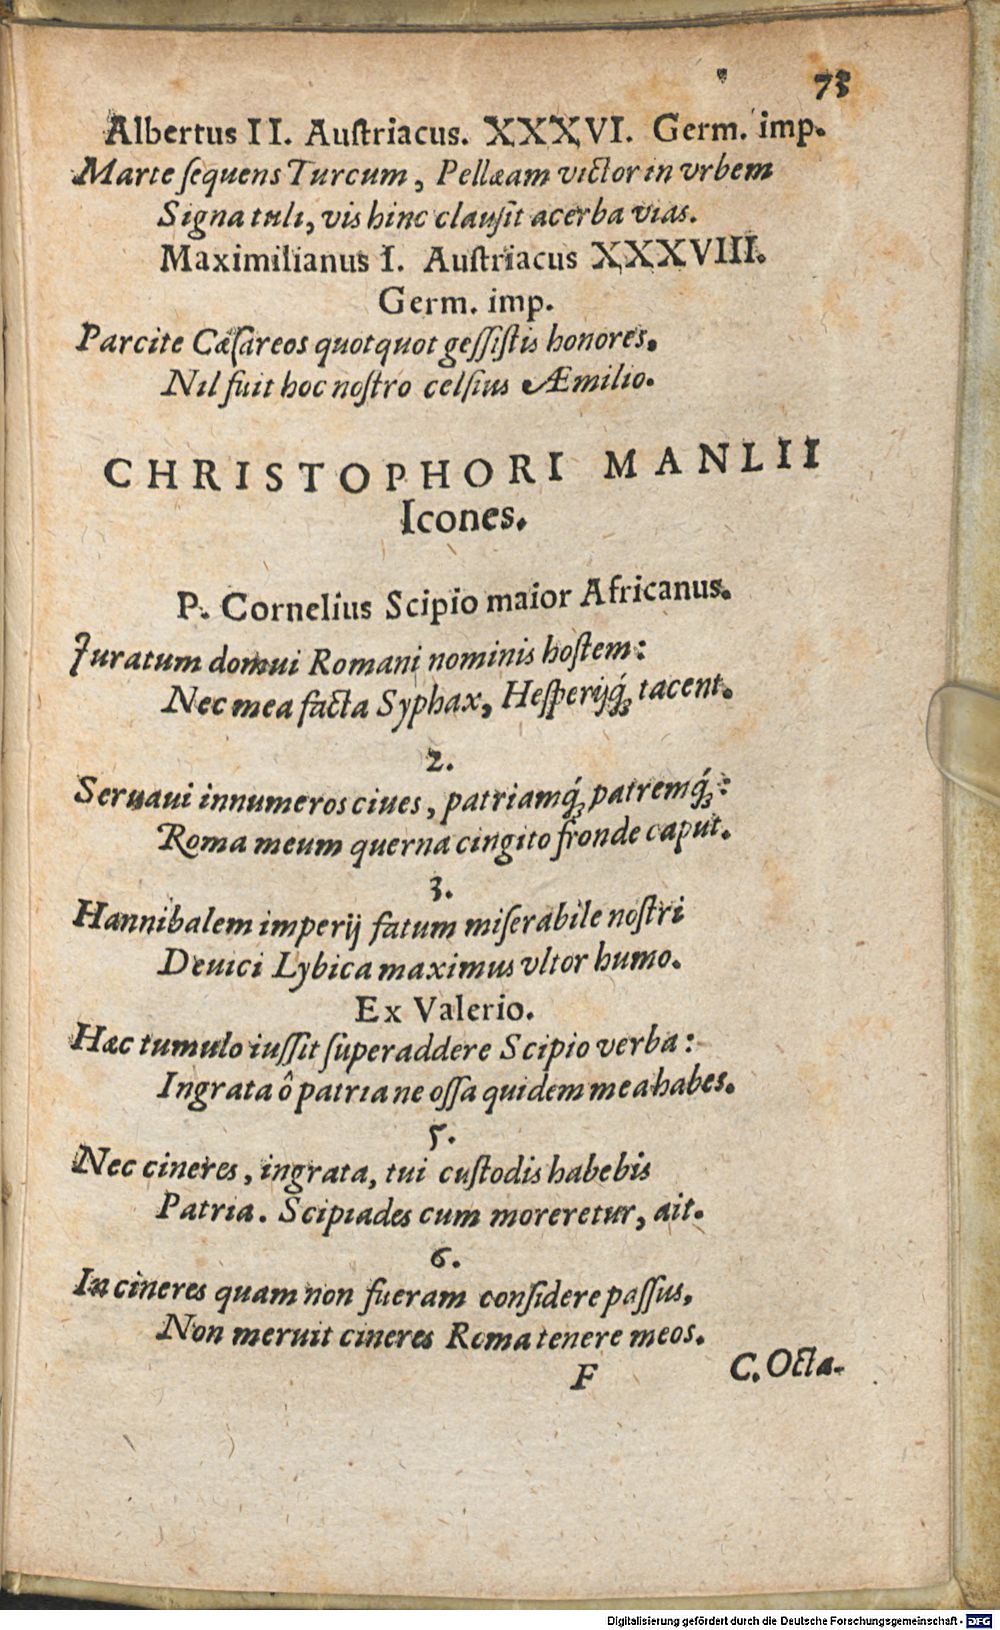 73
Albertus II. Auſtriacus. XXXVI. Germ. imp.
Marte ſequens Turcum, Pellæam victor in vrbem
Signa tuli, vis hinc clauſit acerba vias.
Maximilianus I. Auſtriacus XXXVIII.
Germ. imp.
Parcite Cæſareos quotquot geſſiſtis honores.
Nil fuit hoc noſtro celſius Æmilio.
CHRISTOPHORI MANLII
Icones.
P. Cornelius Scipio maior Africanus.
Juratum domui Romani nominis hoſtem:
Nec mea facta Syphax, Heſperijq́; tacent.
2.
Seruaui innumeros ciues, patriamq́; patremq́;:
Roma meum querna cingito fronde caput.
3.
Hannibalem imperij fatum miſerabile noſtri
Deuici Lybica maximus vltor humo.
Ex Valerio.
Hæc tumulo iuſſit ſuperaddere Scipio verba:
Ingrata ô patria ne oſſa quidem mea habes.
5.
Nec cineres, ingrata, tui cuſtodis habebis
Patria. Scipiades cum moreretur, ait.
6.
In cineres quam non fueram conſidere paſſus,
Non meruit cineres Roma tenere meos.
F C. Octa-
Digitalisierung gefördert durch die Deutsche Forschungsgemeinschaft - DFG